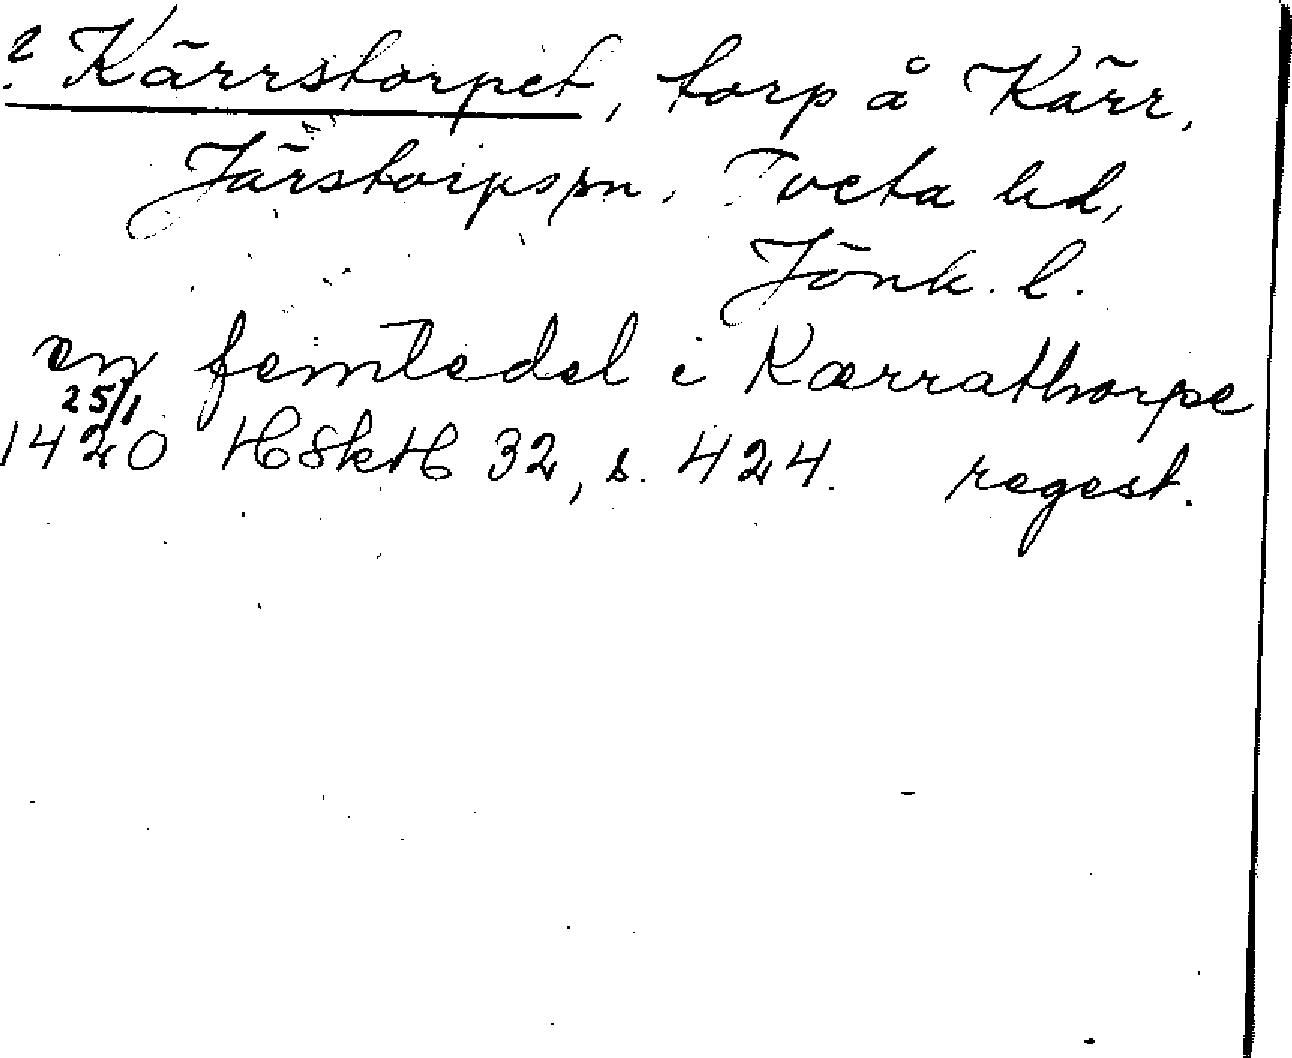 ? Kärrstorpet, torp å Kärr,
Järstorps sn, Tveta hd,
Jönk. l.
en femtedel i Kærrathorpe
25/1
1420 HSkH 32, s. 424. regest.